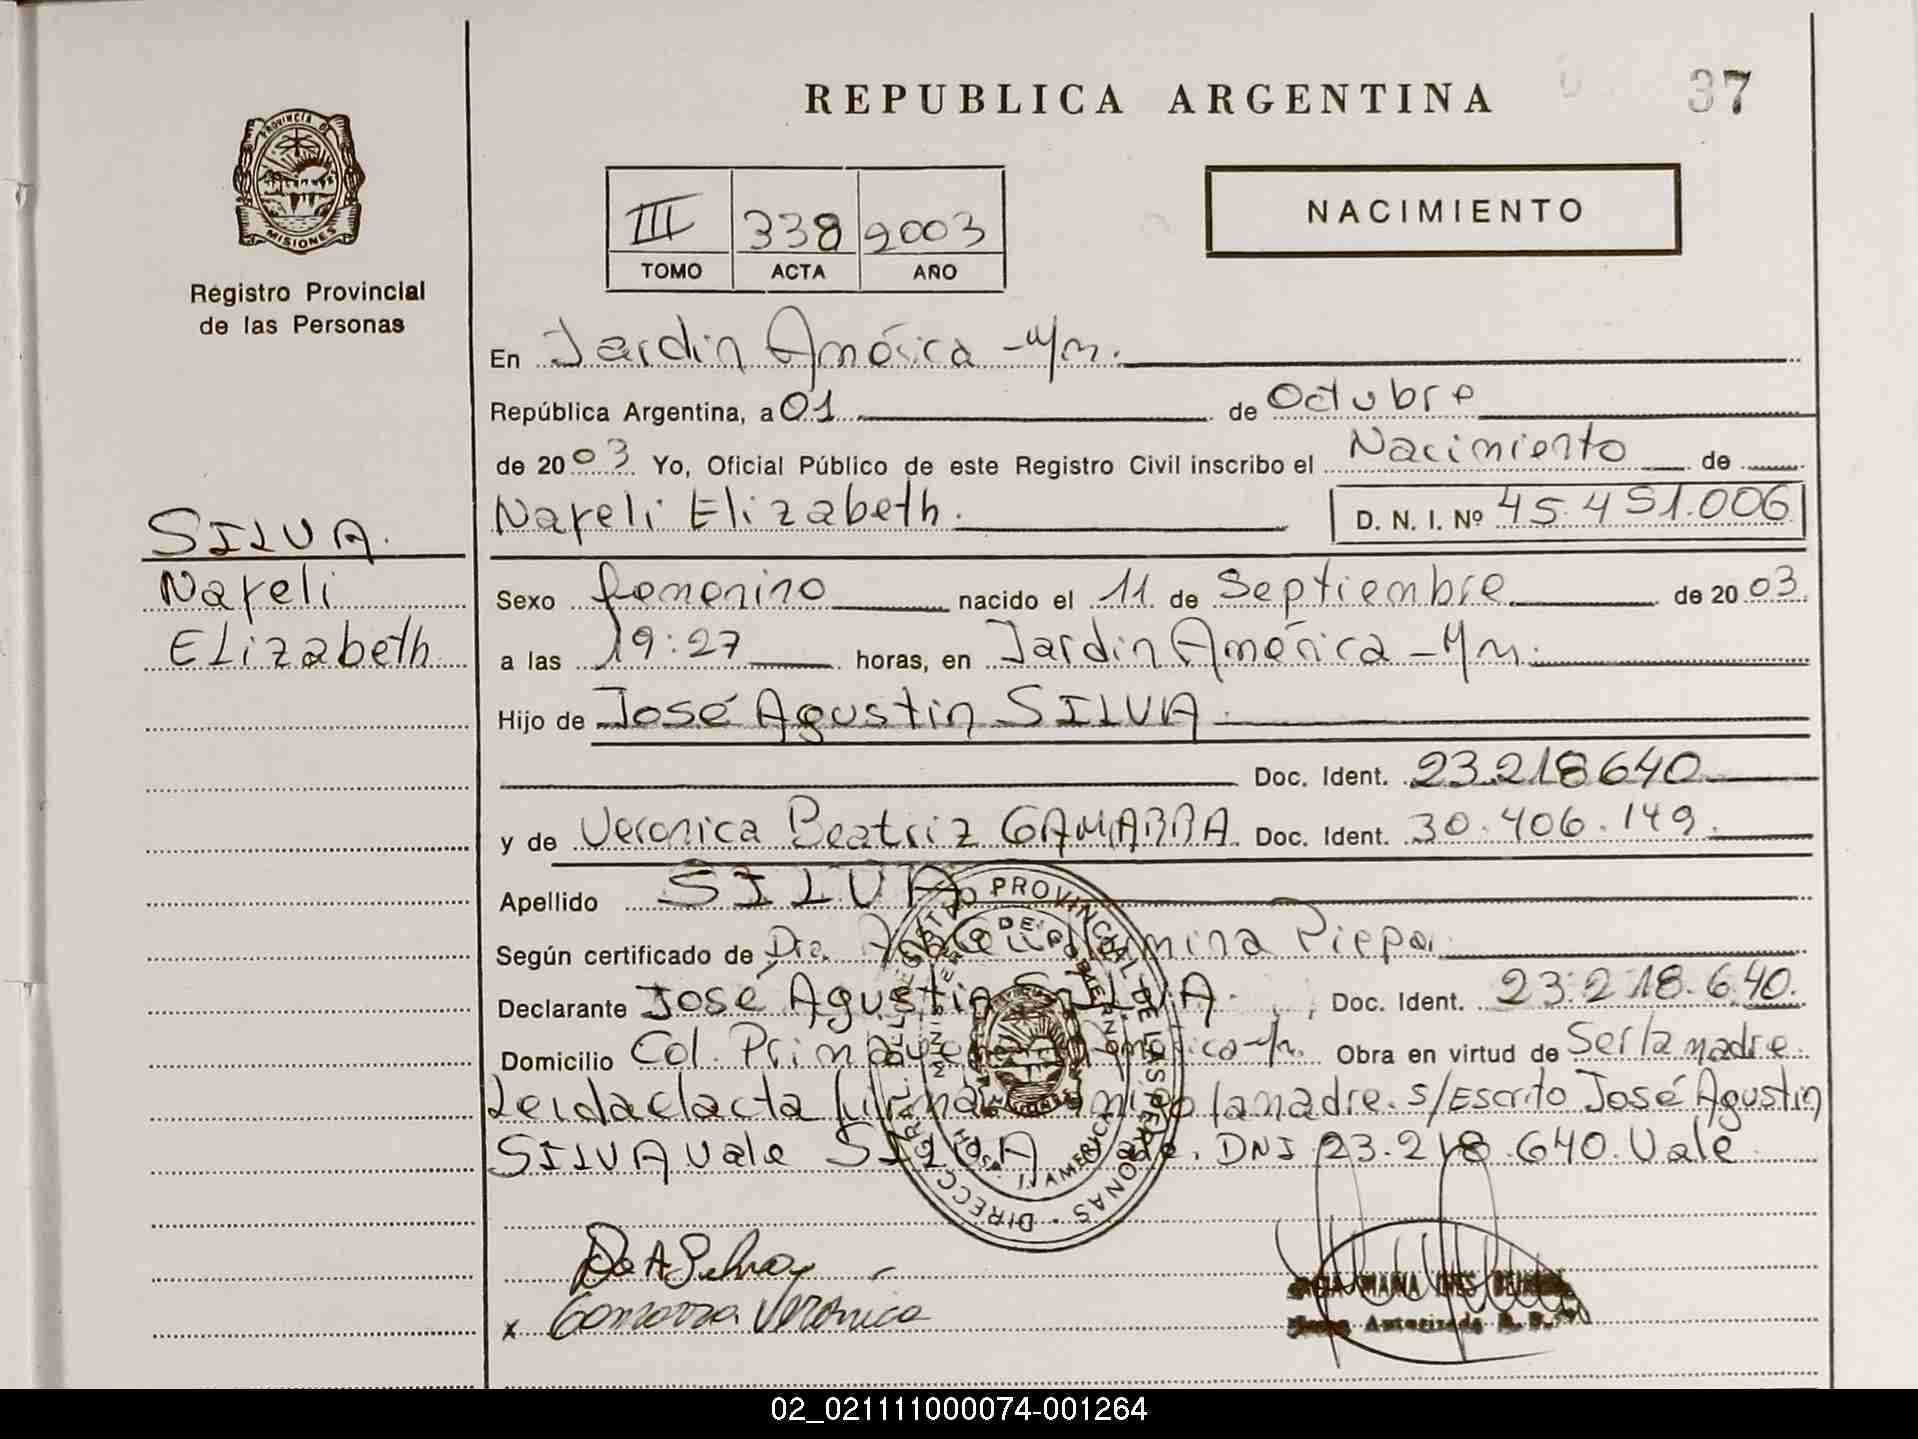 REPUBLICA ARGENTINA
37
PROVINCIA DE
MISIONES
Registro Provincial
de las Personas
III 338 2003
TOMO ACTA AÑO
NACIMIENTO
En Jardin América - M/n.
República Argentina, a 01 de Octubre
de 2003 Yo, Oficial Público de este Registro Civil inscribo el Nacimiento de
Nayeli Elizabeth. D. N. I. Nº 45.451.006
SILVA.
Nayeli
Elizabeth
Sexo femenino nacido el 11 de Septiembre de 2003.
a las 19:27 horas, en Jardin América - M/n.
Hijo de José Agustin SILVA
Doc. Ident. 23.218640
y de Veronica Beatriz GAMARRA. Doc. Ident. 30.406.149.
Apellido SILVA
Según certificado de Dra. Piepa.
Declarante José Agustin SILVA. Doc. Ident. 23.218.640.
Domicilio Col. Obra en virtud de Ser la madre.
Leida el acta la madre. s/Escrito José Agustin
SILVA Vale SILVA DNI 23.218.640. Vale
REGISTRO PROVINCIAL DE LAS PERSONAS
DE GOBIERNO
x Gamarra Veronica
02_021111000074-001264